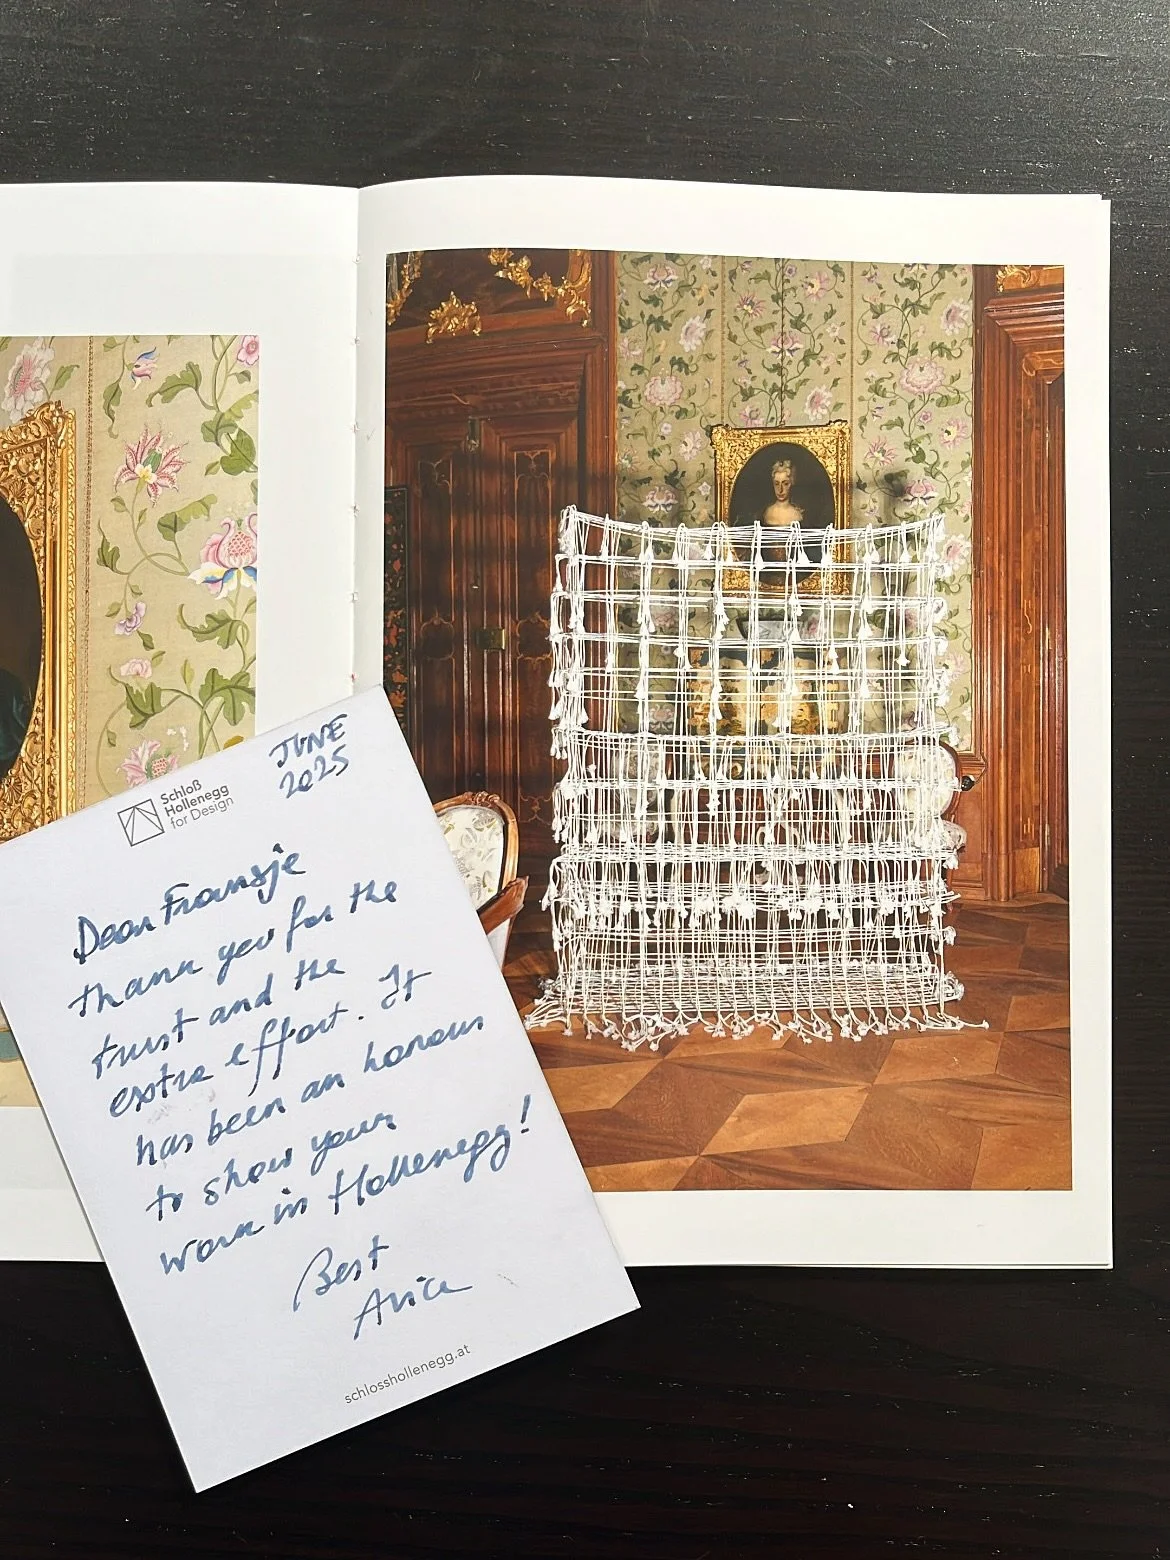 JUNE
2025
Schloß
Hollenegg
for Design
Dear Fransje
thank you for the
trust and the
extra effort. It
has been an honour
to show your
work in Hollenegg!
Best
Alice
schlosshollenegg.at